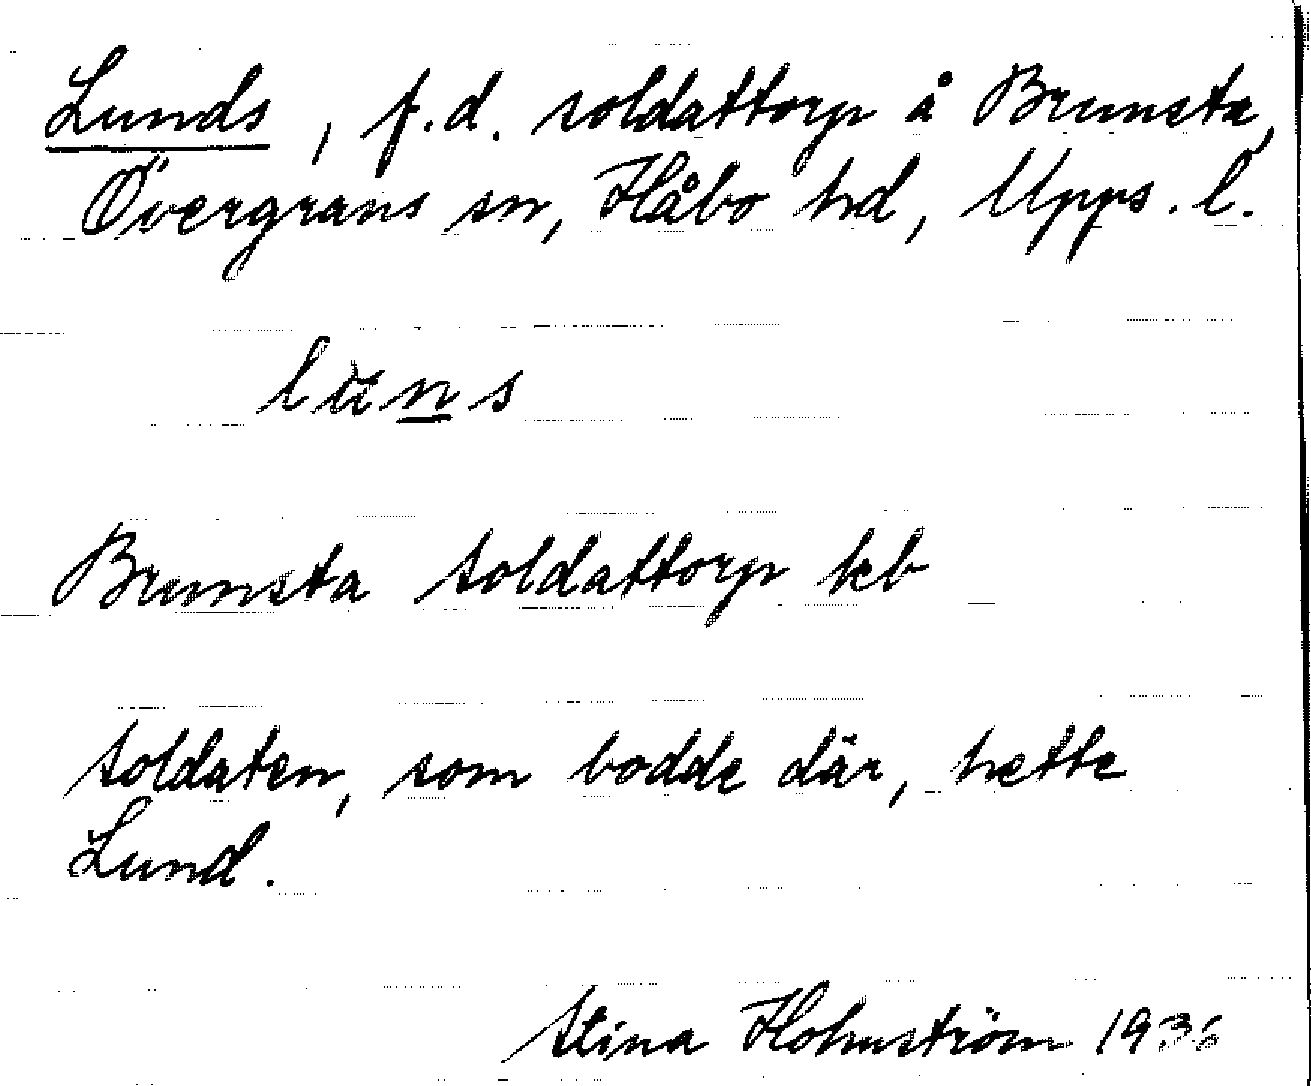 Lunds, f.d. soldattorp å Brunsta,
Övergrans sn, Håbo hd, Upps. l.
Brunsta soldattorp keb
Soldaten, som bodde där, hette
Lund.
Stina Holmström 1936